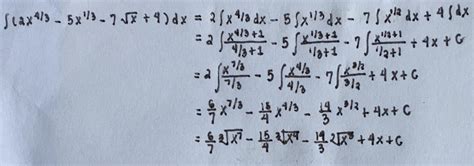 ∫(2x^{4/3} - 5x^{1/3} - 7√x + 4) dx = 2∫x^{4/3} dx - 5∫x^{1/3} dx - 7∫x^{1/2} dx + 4∫dx
= 2∫ x^{4/3+1}/(4/3+1) - 5∫ x^{1/3+1}/(1/3+1) - 7∫ x^{1/2+1}/(1/2+1) + 4x + C
= 2∫ x^{7/3}/(7/3) - 5∫ x^{4/3}/(4/3) - 7∫ x^{3/2}/(3/2) + 4x + C
= 6/7 x^{7/3} - 15/4 x^{4/3} - 14/3 x^{3/2} + 4x + C
= 6/7 ∛x^7 - 15/4 ∛x^4 - 14/3 ²√x^3 + 4x + C